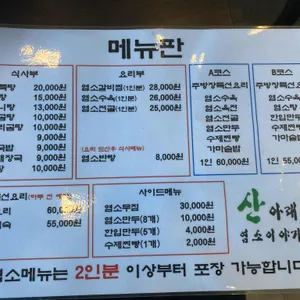 메뉴판
식사부
20,000원
15,000원
13,000원
10,000원
10,000원
9,000원
9,000원
9,000원
9,000원
요리부
염소갈비찜(1인분) 28,000원
염소수육(1인분) 26,000원
염소전골(1인분) 25,000원
(요리 드신후 식사메뉴)
염소반탕 8,000원
A코스
주방장특선요리
염소수육
염소전
염소전골
염소만두
수제찐빵
가마솥밥
1인 60,000원
B코스
주방장특선요리
염소수육
염소탕
한입만두
수제찐빵
가마솥밥
1인 55,000
60,000원
55,000원
사이드메뉴
염소무침 30,000원
염소만두(8개) 10,000원
한입만두(5개) 4,000원
수제찐빵(1개) 2,000원
산아래
염소이야기
염소메뉴는 2인분 이상부터 포장 가능합니다